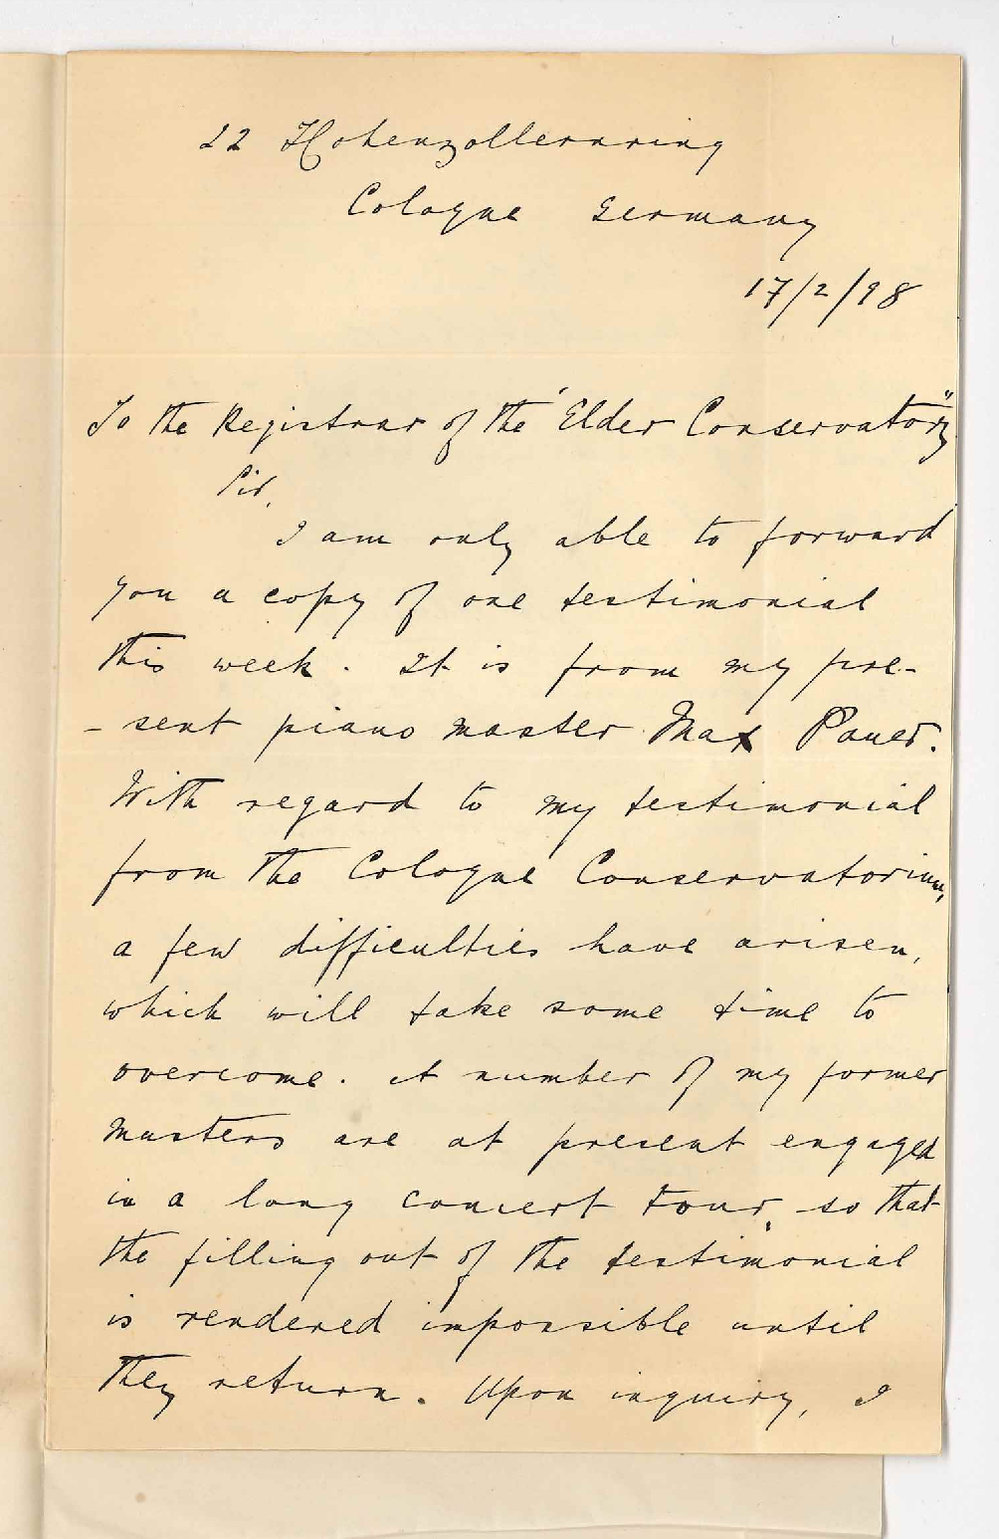 22 Hohenzollernring
Cologne Germany
17/2/98
To the Registrar of the "Elder Conservatory"
Sir,
I am only able to forward
you a copy of one testimonial
this week. It is from my pre-
- sent piano master Max Pauer.
With regard to my testimonial
from the Cologne Conservatorium,
a few difficulties have arisen,
which will take some time to
overcome. A number of my former
masters are at present engaged
in a long concert tour, so that
the filling out of the testimonial
is rendered impossible until
they return. Upon inquiry, I